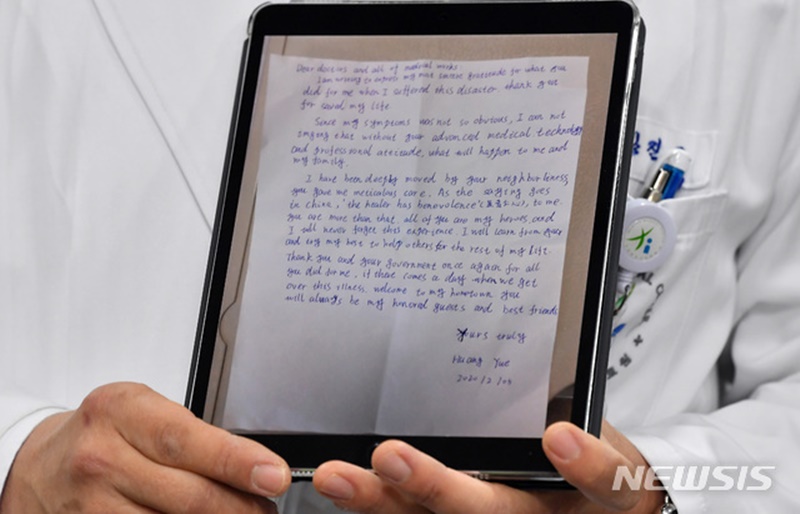 Dear doctors and all of medical works:
I am writing to express my most sincere gratitude for what you
did for me when I suffered this disaster. thank you
for saved my life.
Since my symptoms was not so obvious, I can not
imging that without your advanced medical technology
and professional attitude, what will happen to me and
my family.
I have been deeply moved by your neighborliness,
you gave me meticulous care. As the saying goes
in china, 'the healer has benevolence' to me.
you are more than that. all of you are my heroes, and
I will never forget this experience. I will learn from your
and try my best to help others for the rest of my life.
Thank you and your government once again for all
you did for me. if there comes a day when we get
over this illness. welcome to my hometown you
will always be my honored guests and best friends
Yours truly
Huang Yue
NEWSIS